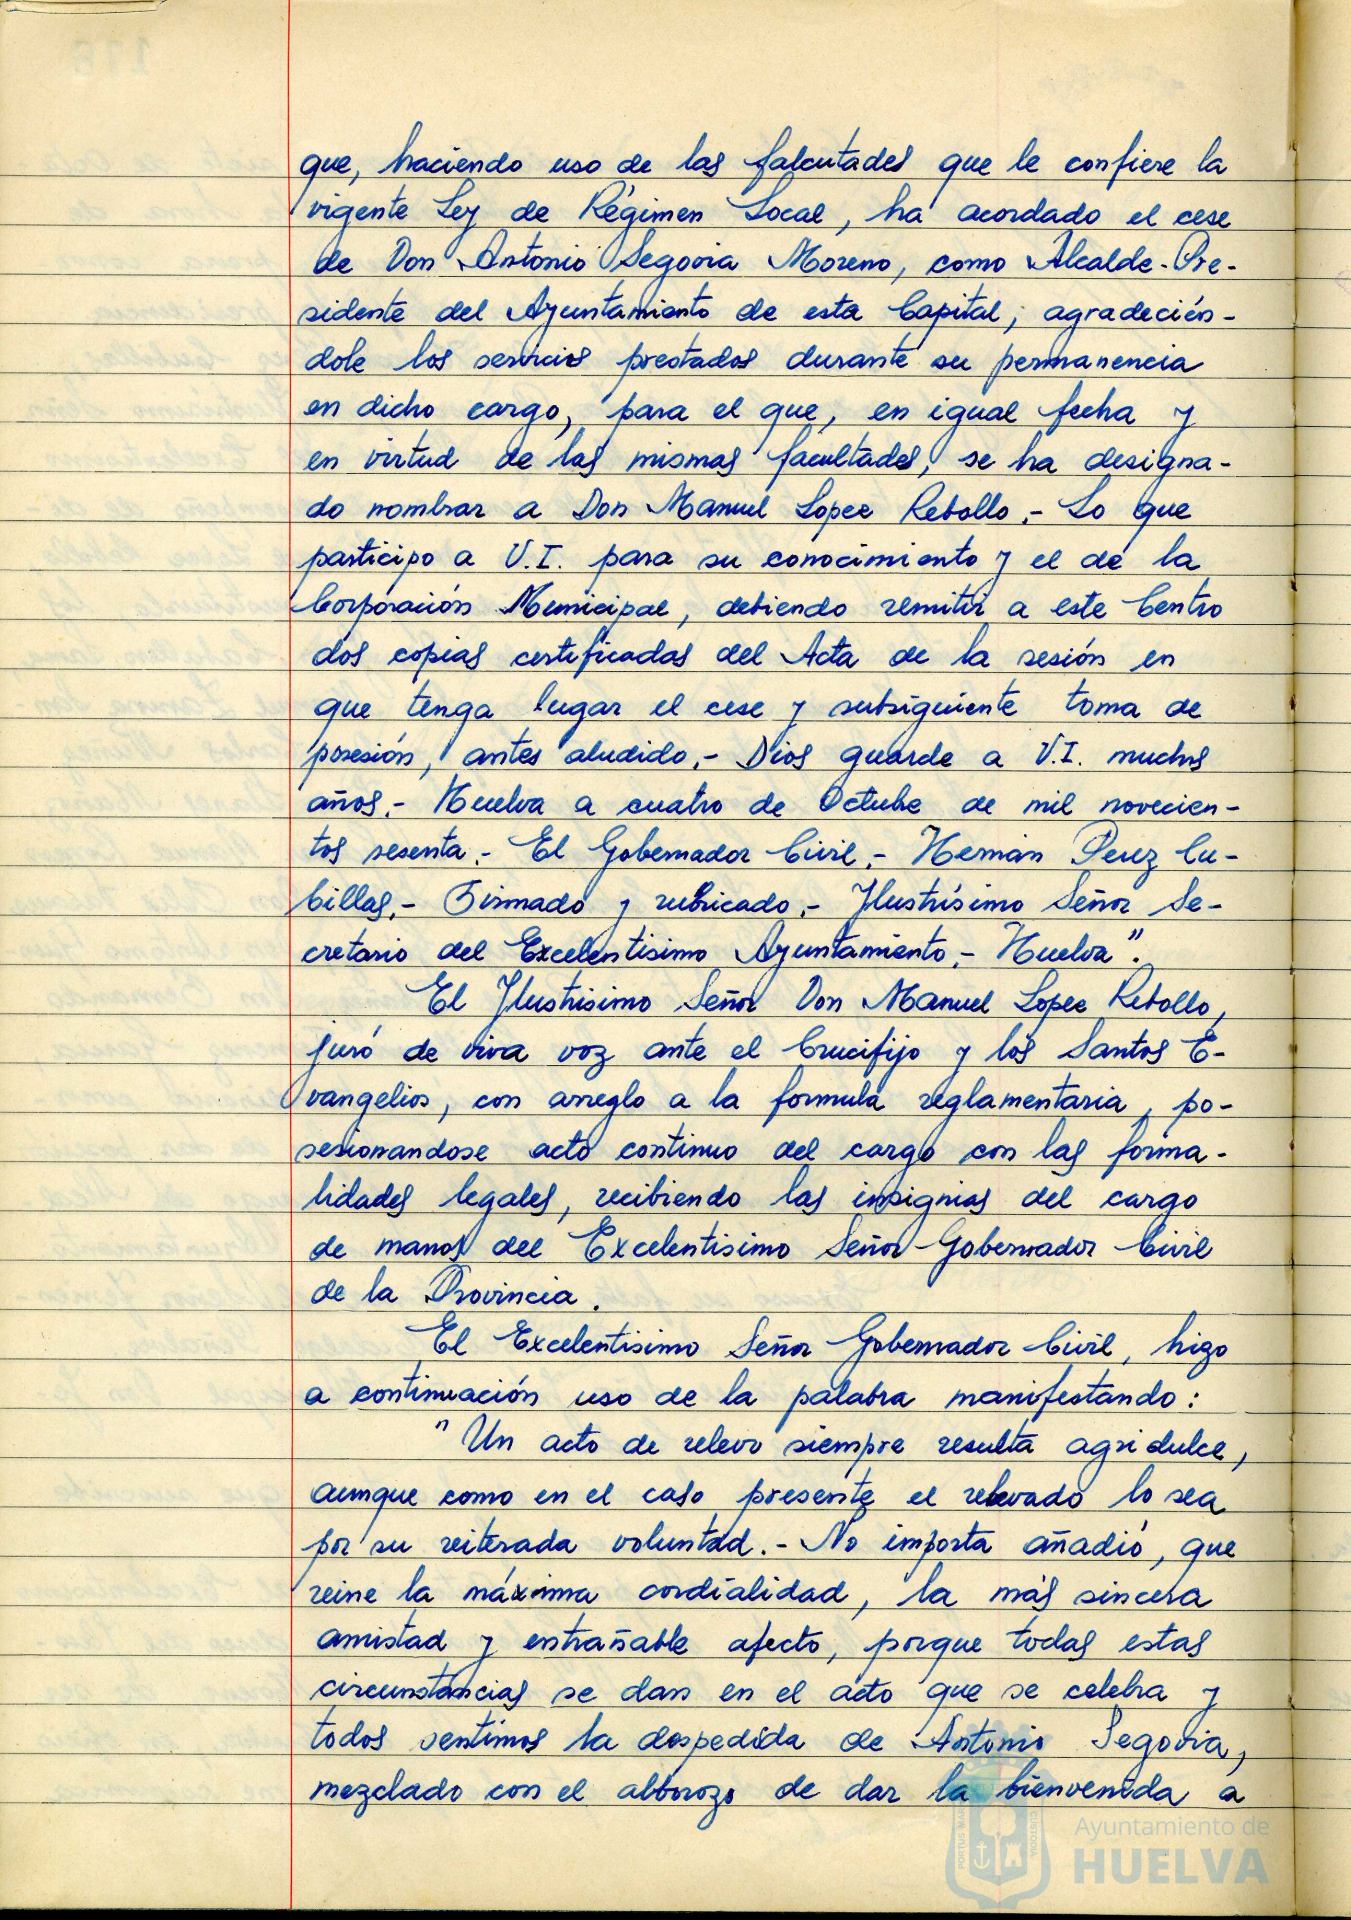 que, haciendo uso de las falcutades que le confiere la
vigente Ley de Régimen Local, ha acordado el cese
de Don Antonio Segovia Moreno, como Alcalde-Pre-
sidente del Ayuntamiento de esta Capital, agradecién-
dole los servicios prestados durante su permanencia
en dicho cargo, para el que, en igual fecha y
en virtud de las mismas facultades, se ha designa-
do nombrar a Don Manuel Lopez Rebollo.- Lo que
participo a V.I. para su conocimiento y el de la
Corporación Municipal, debiendo remitir a este Centro
dos copias certificadas del Acta de la sesión en
que tenga lugar el cese y subsiguiente toma de
posesión, antes aludido.- Dios guarde a V.I. muchos
años.- Huelva a cuatro de Octubre de mil novecien-
tos sesenta.- El Gobernador Civil.- Hernán Perez Cu-
billas.- Firmado y rubricado.- Ilustrísimo Señor Se-
cretario del Excelentisimo Ayuntamiento.- Huelva".
El Ilustrisimo Señor Don Manuel Lopez Rebollo,
juró de viva voz ante el Crucifijo y los Santos E-
vangelios, con arreglo a la formula reglamentaria, po-
sesionandose acto continuo del cargo con las forma-
lidades legales, recibiendo las insignias del cargo
de manos del Excelentisimo Señor Gobernador Civil
de la Provincia.
El Excelentisimo Señor Gobernador Civil, hizo
a continuación uso de la palabra manifestando:
"Un acto de relevo siempre resulta agridulce,
aunque como en el caso presente el relevado lo sea
por su reiterada voluntad.- No importa añadió, que
reine la máxima cordialidad, la más sincera
amistad y entrañable afecto, porque todas estas
circunstancias se dan en el acto que se celebra y
todos sentimos la despedida de Antonio Segovia,
mezclado con el alborozo de dar la bienvenida a
Ayuntamiento de
HUELVA